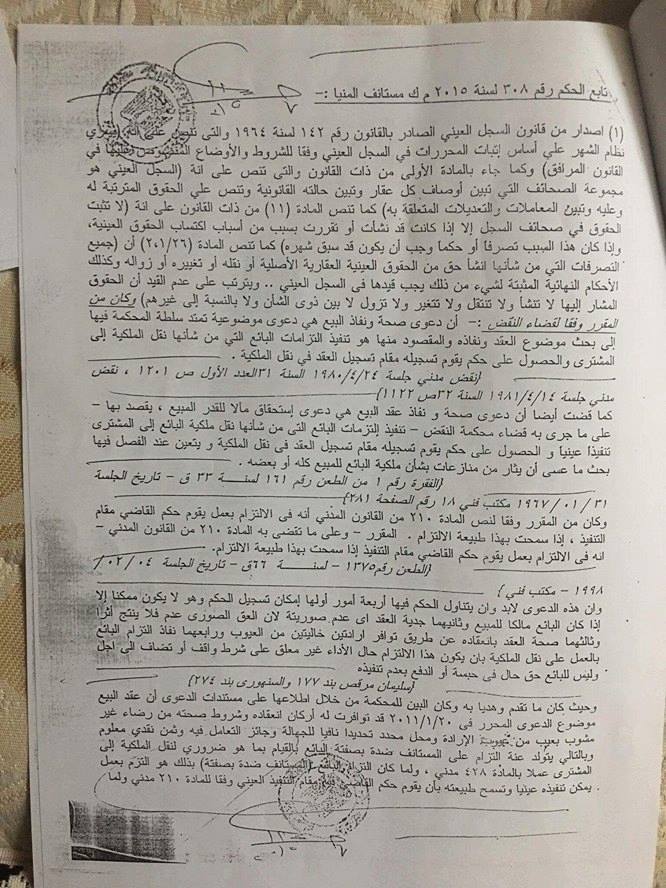 تابع الحكم رقم ٣٠٨ لسنة ٢٠١٥ م ك مستانف المنيا :-
(١) اصدار من قانون السجل العيني الصادر بالقانون رقم ١٤٢ لسنة ١٩٦٤ والتى تنص على انه (يسري
نظام الشهر علي أساس إثبات المحررات في السجل العيني وفقا للشروط والأوضاع المنصوص عليها في
القانون المرافق) وكما جاء بالمادة الأولى من ذات القانون والتى تنص على انة (السجل العيني هو
مجموعة الصحائف التي تبين أوصاف كل عقار وتبين حالته القانونية وتنص علي الحقوق المترتبة له
وعليه وتبين المعاملات والتعديلات المتعلقة به) كما تنص المادة (١١) من ذات القانون على انة (لا تثبت
الحقوق في صحائف السجل إلا إذا كانت قد نشأت أو تقررت بسبب من أسباب اكتساب الحقوق العينية،
وإذا كان هذا السبب تصرفاً أو حكما وجب أن يكون قد سبق شهره) كما تنص المادة (٢٠١/٢٦) أن (جميع
التصرفات التي من شأنها انشأ حق من الحقوق العينية العقارية الأصلية أو نقله أو تغييره أو زواله وكذلك
الأحكام النهائية المثبتة لشيء من ذلك يجب قيدها فى السجل العيني .. ويترتب على عدم القيد أن الحقوق
المشار إليها لا تنشأ ولا تنتقل ولا تتغير ولا تزول لا بين ذوى الشأن ولا بالنسبة إلى غيرهم) وكان من
المقرر وفقا لقضاء النقض :- أن دعوى صحة ونفاذ البيع هي دعوى موضوعية تمتد سلطة المحكمة فيها
إلى بحث موضوع العقد ونفاذه والمقصود منها هو تنفيذ التزامات البائع التي من شأنها نقل الملكية إلى
المشترى والحصول على حكم يقوم تسجيله مقام تسجيل العقد في نقل الملكية .
{نقض مدني جلسة ١٩٨٠/٤/٢٤ السنة ٣١العدد الأول ص ١٢٠١ ، نقض
مدني جلسة ١٩٨١/٤/١٤ السنة ٣٢ص ١١٢٢}
كما قضت ايضا أن دعوى صحة و نفاذ عقد البيع هي دعوى إستحقاق مآلا للقدر المبيع ، يقصد بها –
على ما جرى به قضاء محكمة النقض – تنفيذ إلتزمات البائع التى من شأنها نقل ملكية البائع إلى المشترى
تنفيذا عينيا و الحصول على حكم يقوم تسجيله مقام تسجيل العقد فى نقل الملكية و يتعين عند الفصل فيها
بحث ما عسى أن يثار من منازعات بشأن ملكية البائع للمبيع كله أو بعضه .
{الفقرة رقم ١ من الطعن رقم ١٦١ لسنــــة ٣٣ ق – تاريخ الجلسة
٣١ / ٠١ / ١٩٦٧ مكتب فني ١٨ رقم الصفحة ٢٨١}
وكان من المقرر وفقا لنص المادة ٢١٠ من القانون المدني أنه فى الالتزام بعمل يقوم حكم القاضي مقام
التنفيذ ، إذا سمحت بهذا طبيعة الالتزام . المقرر – وعلى ما تقضى به المادة ٢١٠ من القانون المدني –
انه فى الالتزام بعمل يقوم حكم القاضي مقام التنفيذ إذا سمحت بهذا طبيعة الالتزام.
{الطعن رقم ١٣٧٥- لسنـــــة ٦٦ق - تاريخ الجلسة ٠٤ / ٠٢ /
١٩٩٨ – مكتب فني }
وان هذه الدعوى لابد وان يتناول الحكم فيها أربعة أمور أولها إمكان تسجيل الحكم وهو لا يكون ممكنا إلا
إذا كان البائع مالكا للمبيع وثانيهما جدية العقد اى عدم صوريته لان العق الصورى عدم فلا ينتج أثرا
وثالثهما صحة العقد بانعقاده عن طريق توافر ارادتين خاليتين من العيوب ورابعهما نفاذ التزام البائع
بالعمل على نقل الملكية بان يكون هذا الالتزام حال الأداء غير معلق على شرط واقف أو تضاف الى اجل
وليس للبائع حق حال فى حبسة أو الدفع بعدم تنفيذه
{سليمان مرقص بند ١٧٧ والسنهورى بند ٢٧٤}
وحيث كان ما تقدم وهديا به وكان البين للمحكمة من خلال اطلاعها على مستندات الدعوى أن عقد البيع
موضوع الدعوى المحرر فى ٢٠١١/١/٢٠ قد توافرت له أركان انعقاده وشروط صحته من رضاء غير
مشوب بعيب من عيوب الإرادة ومحل محدد تحديدا نافيا للجهالة وجائز التعامل فيه وثمن نقدي معلوم
وبالتالي يتولد عنة التزام على المستانف ضدة بصفتة البائع بالقيام بما هو ضروري لنقل الملكية إلى
المشترى عملا بالمادة ٤٢٨ مدني ، ولما كان التزام البائع (المستانف ضدة بصفته) بذلك هو التزم بعمل
يمكن تنفيذه عينيا وتسمح طبيعته بأن يقوم حكم القاضي فيه مقام التنفيذ العيني وفقا للمادة ٢١٠ مدني ولما .